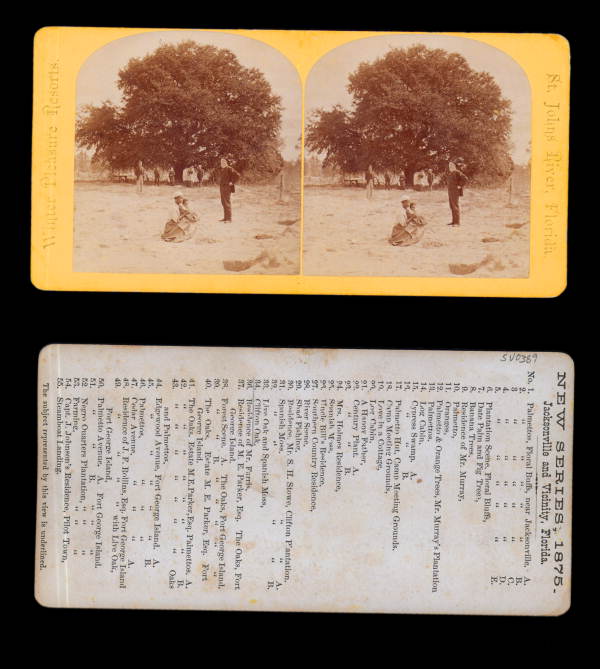 St. Johns River, Florida.
SV0389
NEW SERIES, 1875.
Jacksonville and Vicinity, Florida.
No. 1. Palmettos, Floral Bluff, near Jacksonville, A.
2. " " " " B.
3 " " " " C.
4. " " " " D.
5. " " " " E.
6. Plantation Scene, Floral Bluff,
7. Date Palm and Fig Trees,
8. Banana Trees,
9. Residence of Mr. Murray,
10. Palmetto,
11. Oranges,
12. Palmetto & Orange Trees, Mr. Murray's Plantation
13. Palmettos,
14. Log Cabin,
15. Cypress Swamp, A.
16. " " B.
17. Palmetto Hut, Camp Meeting Grounds.
18. Camp Meeting Grounds,
19. Love Cottage,
20. Log Cabin,
21. A Happy Father,
22. Century Plant, A.
23. " " B.
24. Mrs. Holmes Residence,
25. Spanish Moss,
26. Empire Mills,
27. Southern Country Residence,
28. River Scene,
29. Shad Fishing,
30. Residence, Mr. S. H. Stowe, Clifton Plantation,
31. Spanish Moss, " " A.
32. " " " " B.
33. Live Oak and Spanish Moss,
34. Clifton Oak,
36. Residence of Mr. Farris,
37. Residence of M. E. Parker, Esq. The Oaks, Fort
George Island.
38. Forest Scene, A. The Oaks, Fort George Island,
39. " " B. " "
40. The Oaks, Estate M. E. Parker, Esq. Fort
George Island,
41. The Oaks, Estate M.E. Parker, Esq. Palmettos, A.
42. " " " " " B.
43. " " " " " Oaks
and Palmettos,
44. Edgewood Avenue, Fort George Island. A.
45. " " " " B.
46. Palmettos,
47. Cedar Avenue, " " A.
48. Residence of J. F. Rollins, Esq. Fort George Island
49. " " " with Live Oak,
Fort George Island,
50. Palmetto Avenue, A. Fort George Island.
51. " " B. " "
52. Negro Quarters Plantation, " "
53. Fanning, " "
54. Capt. J. Johnson's Residence, Pilot Town,
55. Steamboat Landing,
The subject represented by this view is underlined.